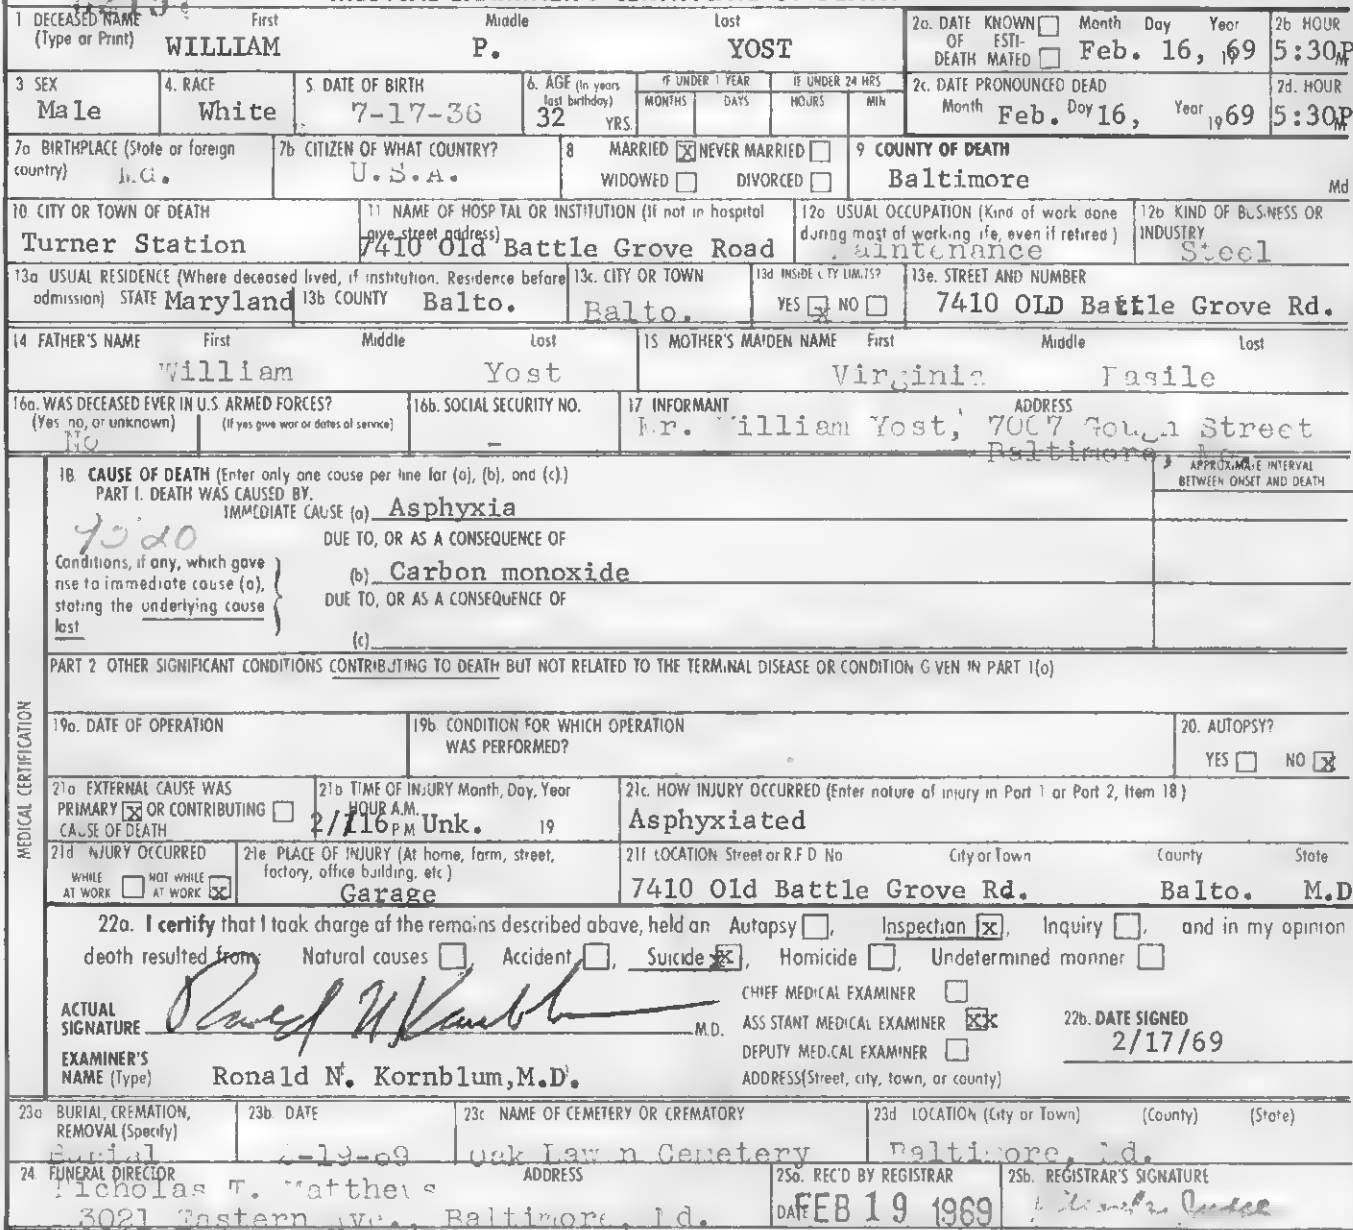 1 DECEASED NAME First Middle Last
(Type or Print) WILLIAM P. YOST
2a. DATE KNOWN Month Day Year
OF ESTI-
DEATH MATED Feb. 16, 1969
2b HOUR
5:30P M
3 SEX
Male
4. RACE
White
5. DATE OF BIRTH
7-17-36
6. AGE (In years
last birthday)
32 YRS.
IF UNDER 1 YEAR
MONTHS DAYS
IF UNDER 24 HRS
HOURS MIN
2c. DATE PRONOUNCED DEAD
Month Feb. Day 16, Year 1969
2d. HOUR
5:30P M
7a BIRTHPLACE (State or foreign
country) Md.
7b CITIZEN OF WHAT COUNTRY?
U.S.A.
8 MARRIED X NEVER MARRIED
WIDOWED DIVORCED
9 COUNTY OF DEATH
Baltimore Md
10. CITY OR TOWN OF DEATH
Turner Station
11 NAME OF HOSPITAL OR INSTITUTION (If not in hospital
give street address)
7410 Old Battle Grove Road
12a USUAL OCCUPATION (Kind of work done
during most of working life, even if retired)
Maintenance
12b KIND OF BUSINESS OR
INDUSTRY
Steel
13a USUAL RESIDENCE (Where deceased lived, if institution. Residence before
admission) STATE Maryland 13b COUNTY Balto.
13c. CITY OR TOWN
Balto.
13d INSIDE CITY LIMITS?
YES X NO
13e. STREET AND NUMBER
7410 OLD Battle Grove Rd.
14 FATHER'S NAME First Middle Last
William Yost
15 MOTHER'S MAIDEN NAME First Middle Last
Virginia
16a. WAS DECEASED EVER IN U.S. ARMED FORCES?
(Yes, no, or unknown) (If yes give war or dates of service)
No
16b. SOCIAL SECURITY NO.
-
17 INFORMANT ADDRESS
Mr. William Yost, 7007 Gough Street
Baltimore, Md.
18. CAUSE OF DEATH (Enter only one cause per line for (a), (b), and (c).)
APPROXIMATE INTERVAL
BETWEEN ONSET AND DEATH
PART I. DEATH WAS CAUSED BY.
IMMEDIATE CAUSE (a) Asphyxia
DUE TO, OR AS A CONSEQUENCE OF
Conditions, if any, which gave
rise to immediate cause (a),
stating the underlying cause
last
(b) Carbon monoxide
DUE TO, OR AS A CONSEQUENCE OF
(c)
PART 2 OTHER SIGNIFICANT CONDITIONS CONTRIBUTING TO DEATH BUT NOT RELATED TO THE TERMINAL DISEASE OR CONDITION GIVEN IN PART 1(a)
MEDICAL CERTIFICATION
19a. DATE OF OPERATION
19b CONDITION FOR WHICH OPERATION
WAS PERFORMED?
20. AUTOPSY?
YES NO X
21a EXTERNAL CAUSE WAS
PRIMARY X OR CONTRIBUTING
CAUSE OF DEATH
21b TIME OF INJURY Month, Day, Year
HOUR A.M.
2/16 P M Unk. 19
21c. HOW INJURY OCCURRED (Enter nature of injury in Part 1 or Part 2, Item 18)
Asphyxiated
21d INJURY OCCURRED
WHILE AT WORK NOT WHILE AT WORK X
21e PLACE OF INJURY (At home, farm, street,
factory, office building, etc)
Garage
21f LOCATION Street or R.F.D No City or Town County State
7410 Old Battle Grove Rd. Balto. M.D
22a. I certify that I took charge of the remains described above, held an Autopsy, Inspection X, Inquiry, and in my opinion
death resulted from: Natural causes, Accident, Suicide X, Homicide, Undetermined manner
ACTUAL
SIGNATURE M.D.
CHIEF MEDICAL EXAMINER
ASSISTANT MEDICAL EXAMINER XX
DEPUTY MEDICAL EXAMINER
22b. DATE SIGNED
2/17/69
EXAMINER'S
NAME (Type) Ronald N. Kornblum, M.D.
ADDRESS (Street, city, town, or county)
23a BURIAL, CREMATION,
REMOVAL (Specify)
Burial
23b. DATE
2-19-69
23c NAME OF CEMETERY OR CREMATORY
Oak Lawn Cemetery
23d LOCATION (City or Town) (County) (State)
Baltimore, Md.
24 FUNERAL DIRECTOR ADDRESS
Nicholas T. Matthews
3021 Eastern Ave., Baltimore, Md.
25a. REC'D BY REGISTRAR
DATE FEB 19 1969
25b. REGISTRAR'S SIGNATURE